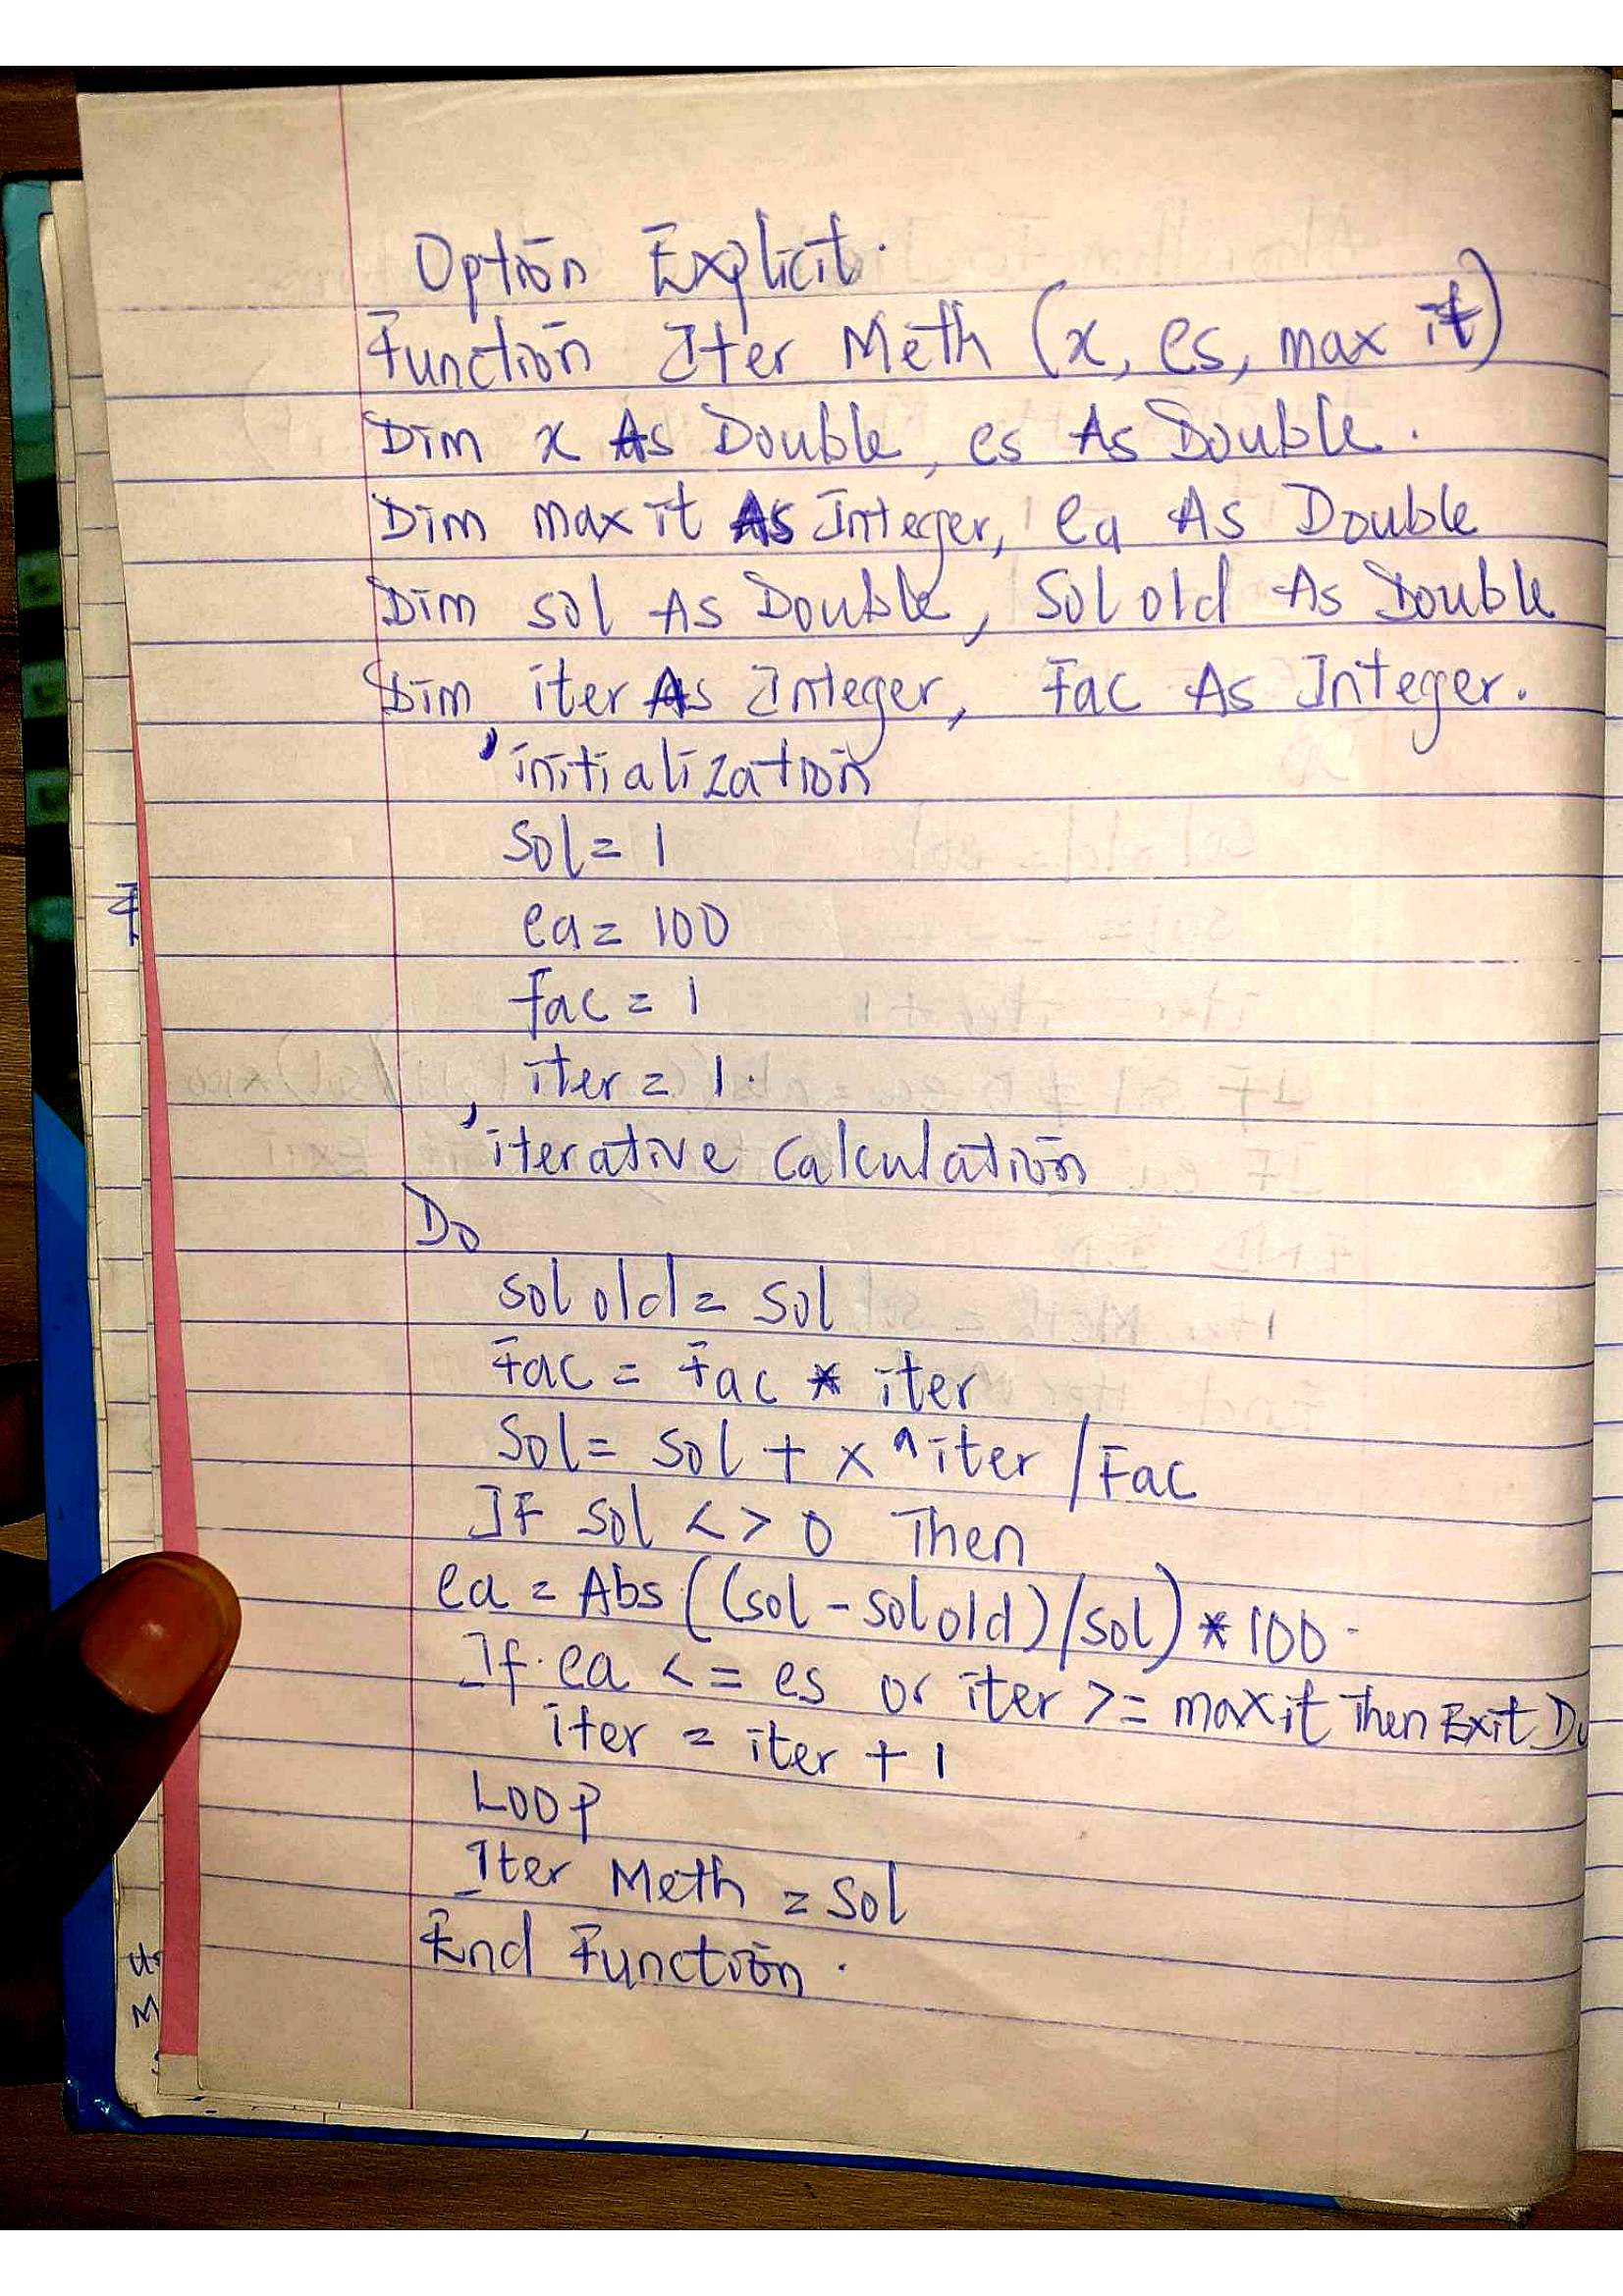 Option Explicit.
Function Iter Meth (x, es, max it)
Dim x As Double, es As Double.
Dim max it As Integer, ea As Double
Dim sol As Double, Sol old As Double
Dim iter As Integer, Fac As Integer.
'initialization
Sol = 1
ea = 100
fac = 1
iter = 1.
'iterative calculation
Do
sol old = sol
Fac = Fac * iter
Sol = sol + x ^ iter / Fac
IF sol < > 0 Then
ea = Abs ((sol - sol old)/sol) * 100.
If ea <= es or iter >= maxit Then Exit Do
iter = iter + 1
LOOP
Iter Meth = sol
End Function.